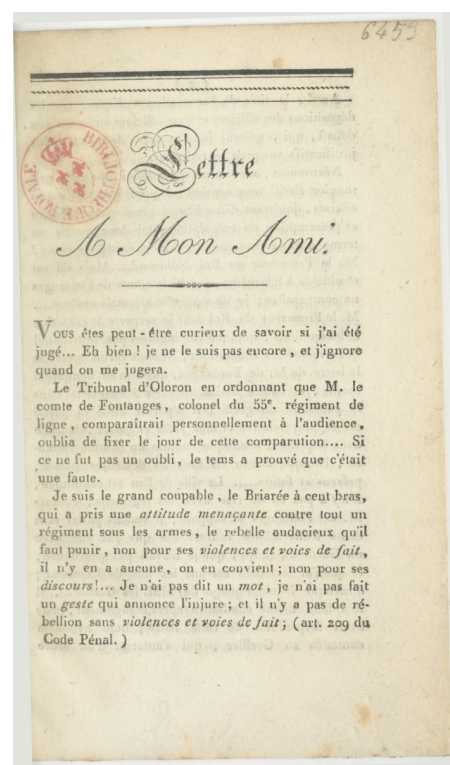 6459
BIBLIOTHEQUE ROYALE
Lettre
A Mon Ami.
Vous êtes peut-être curieux de savoir si j'ai été
jugé... Eh bien ! je ne le suis pas encore, et j'ignore
quand on me jugera.
Le Tribunal d'Oloron en ordonnant que M. le
comte de Fontanges, colonel du 55e. régiment de
ligne, comparaîtrait personnellement à l'audience,
oublia de fixer le jour de cette comparution.... Si
ce ne fut pas un oubli, le tems a prouvé que c'était
une faute.
Je suis le grand coupable, le Briarée à cent bras,
qui a pris une attitude menaçante contre tout un
régiment sous les armes, le rebelle audacieux qu'il
faut punir, non pour ses violences et voies de fait,
il n'y en a aucune, on en convient; non pour ses
discours!... Je n'ai pas dit un mot, je n'ai pas fait
un geste qui annonce l'injure; et il n'y a pas de ré-
bellion sans violences et voies de fait; (art. 209 du
Code Pénal.)